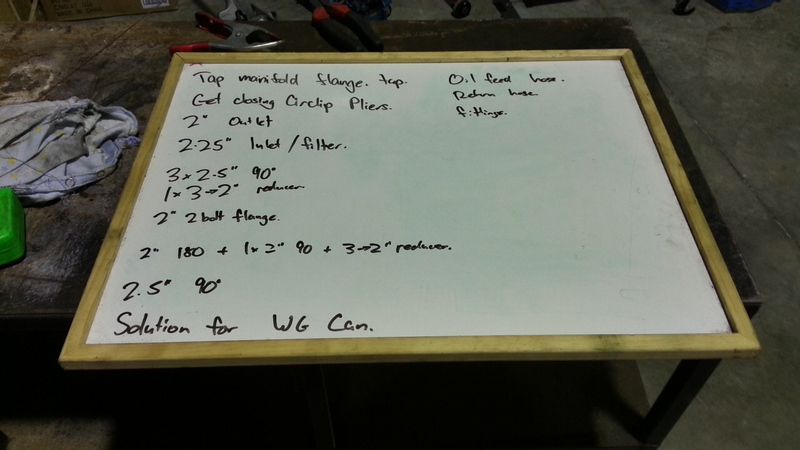 Tap manifold flange. tap.
Get closing Circlip Pliers.
2" Outlet
2.25" Inlet / filter.
3x 2.5" 90°
1x 3→2" reducer
2" 2 bolt flange.
2" 180 + 1x 2" 90 + 3→2" reducer.
2.5" 90°
Solution for WG Can.
Oil feed hose.
Return hose
fittings.